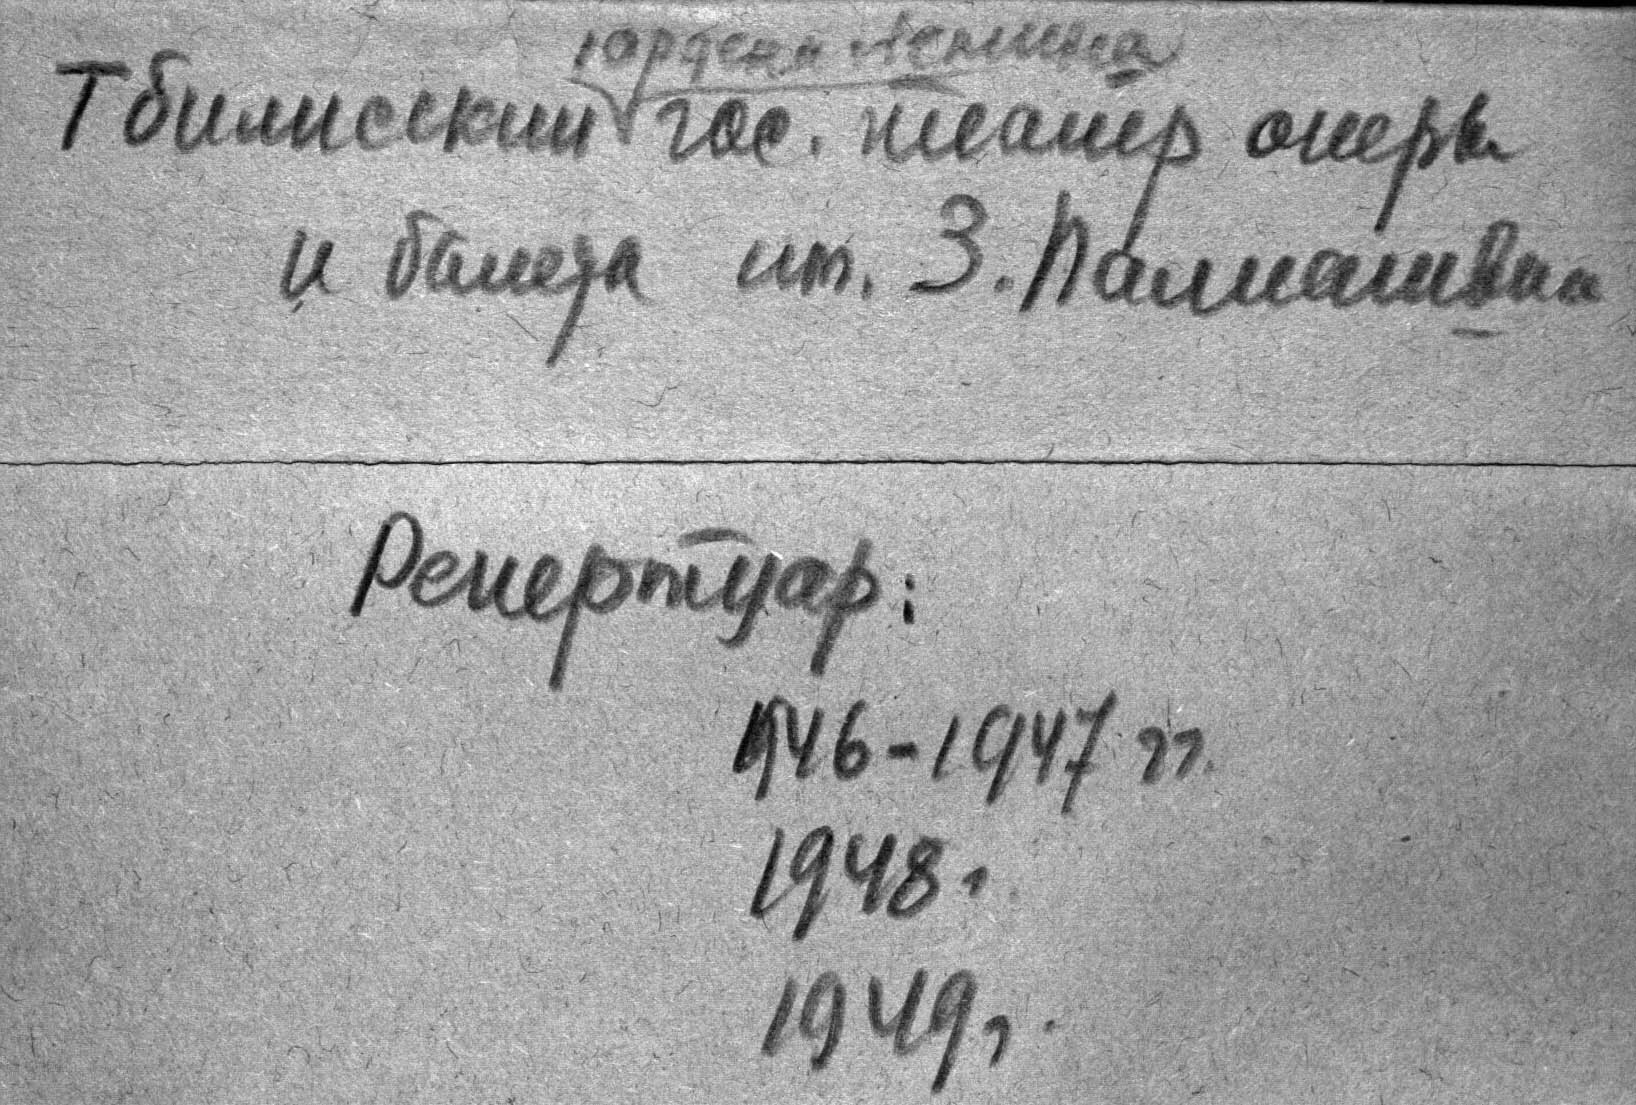 ордена Ленина
Тбилисский гос. театр оперы
и балета им. З. Палиашвили
Репертуар:
1946-1947 гг.
1948 г.
1949 г.